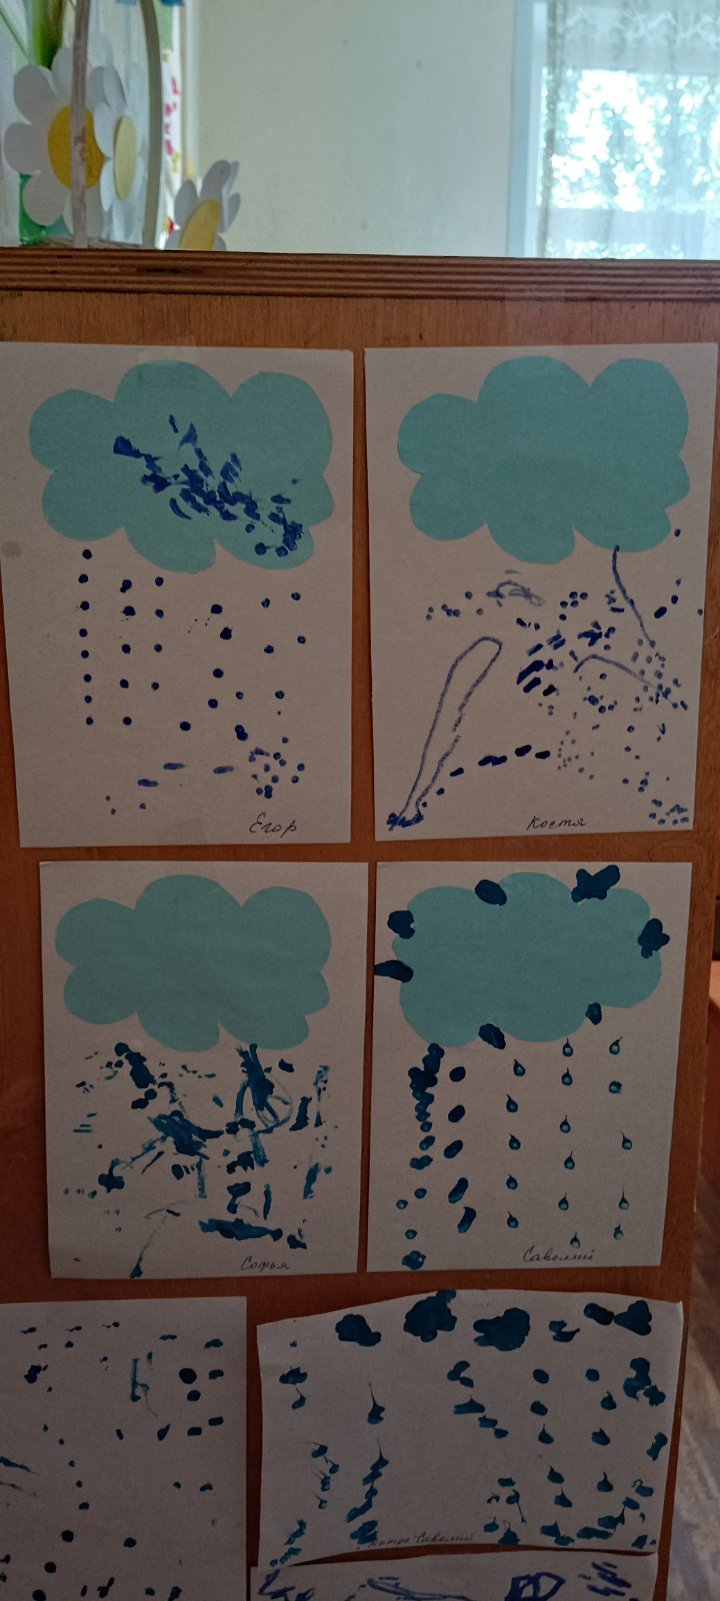 Егор
Костя
Софья
Савелий
Савелий